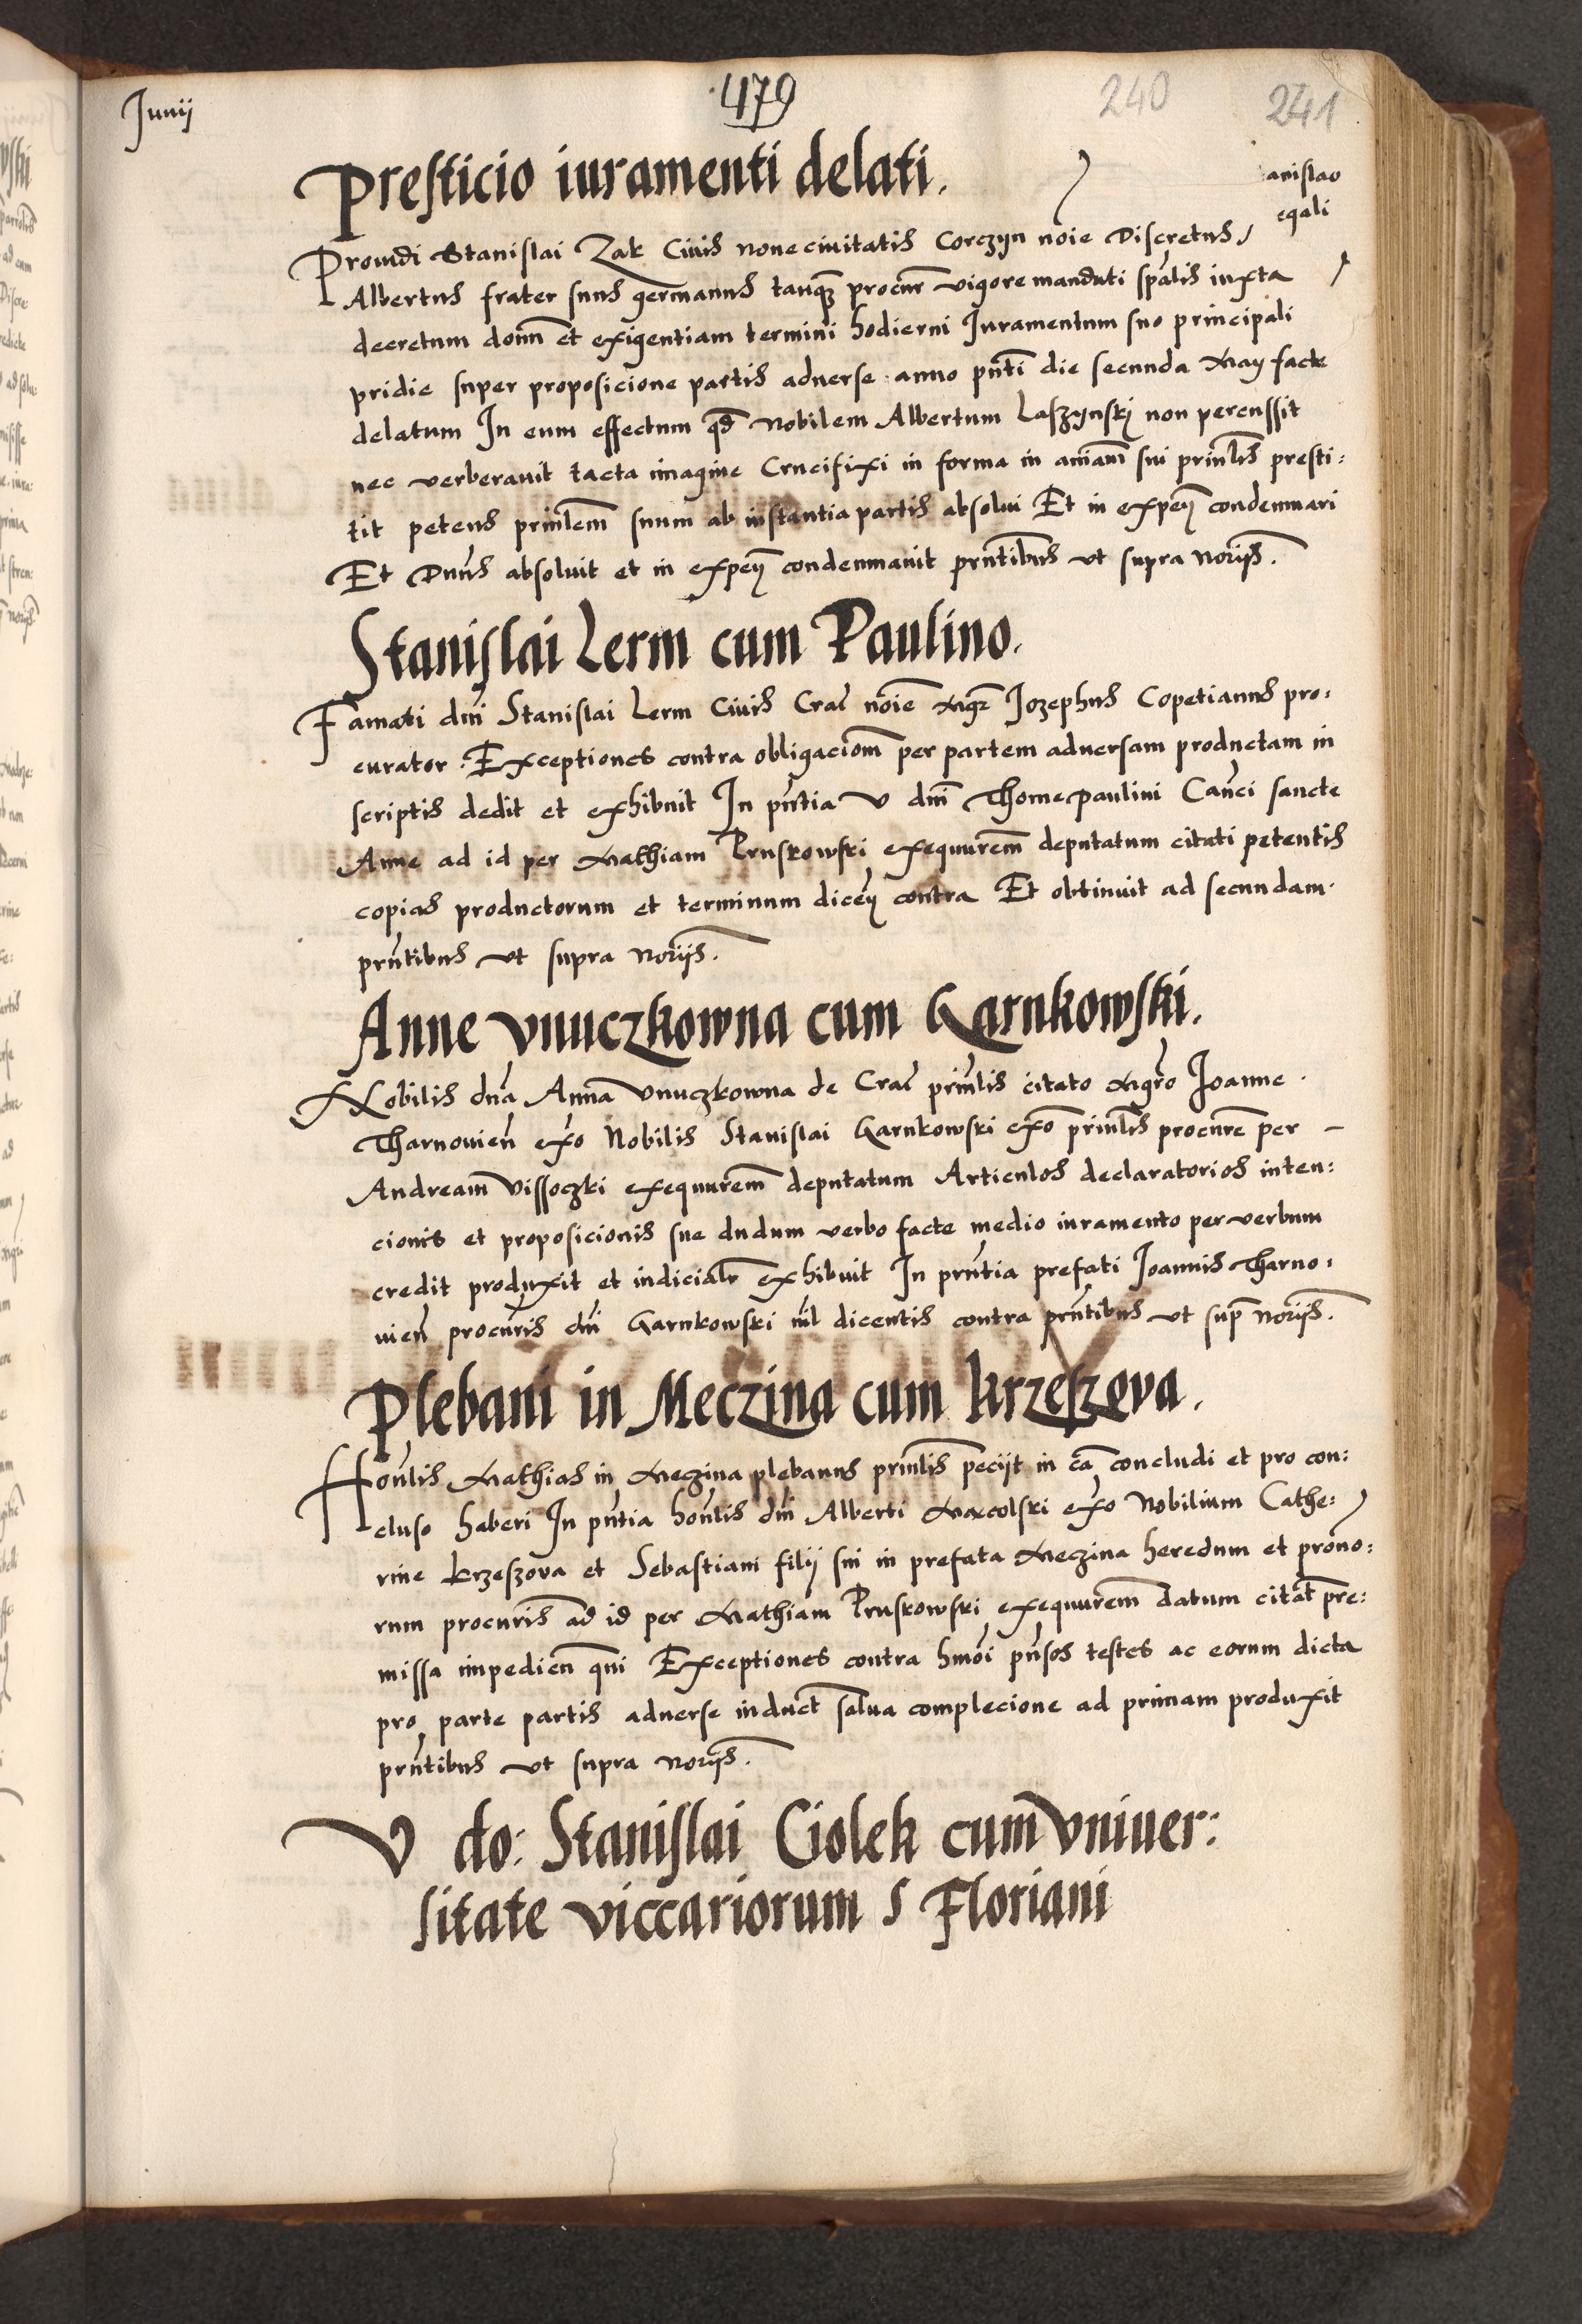 Junij
479
240
241
anislao
egali
Presticio iuramenti delati.
Prouidi Stanislai Zak Ciuis none ciuitatis Corczyn noie Discretus
Albertus frater suus germanus tanq procur vigore mandati spalis iuxta
decretum domi et exigentiam termini hodierni Juramentum suo principali
pridie super proposicione partis aduerse anno pnti die secunda May facte
delatum In eum effectum qd Nobilem Albertum Laszynski non percussit
nec verberauit tacta imagine Crucifixi in forma in aniam sui prinlis presti:
tit petens prinlem suum ab instantia partis absolui Et in expen condemnari
Et Dnus absoluit et in expen condemnauit pntibus vt supra norijs.
Stanislai Lerm cum Paulino.
Famati dni Stanislai Lerm Ciuis Crac noie Mgr Jozephus Copetianus pro:
curator Exceptiones contra obligaciom per partem aduersam productam in
scriptis dedit et exhibuit In pntia V dni Thome Paulini Canci sancte
Anne ad id per Mathiam Pruskowski exequurem deputatum citati petentis
copias productorum et terminum dicen contra Et obtinuit ad secundam
pntibus vt supra norijs.
Anne Vnuczkowna cum Garnkowski.
Nobilis dna Anna Vnuczkowna de Crac prinlis citato Mgro Joanne
Tharnouien exo Nobilis Stanislai Garnkowski exo prinlis procure per
Andream Vissoczki exequurem deputatum Articulos declaratorios inten:
cionis et proposicionis sue dudum verbo facte medio iuramento per verbum
credit produxit et iudicialr exhibuit In pntia prefati Joannis Tharno:
uien procuris dni Garnkowski nil dicentis contra pntibus vt supr norijs.
Plebani in Meczina cum Krzeszova.
Honlis Mathias in Meczina plebanus prinlis peciit in ca concludi et pro con:
cluso haberi In pntia honlis dni Alberti Marcolski exo Nobilium Cathe:
rine Krzeszova et Sebastiani filij sui in prefata Meczina heredum et prono:
rum procuris ad id per Mathiam Pruskowski exequurem datum citat pre:
missa impedien qui Exceptiones contra hmoi pnsos testes ac eorum dicta
pro parte partis aduerse induct salua complecione ad primam produxit
pntibus vt supra norijs.
V do: Stanislai Ciolek cum Vniuer:
sitate viccariorum S Floriani